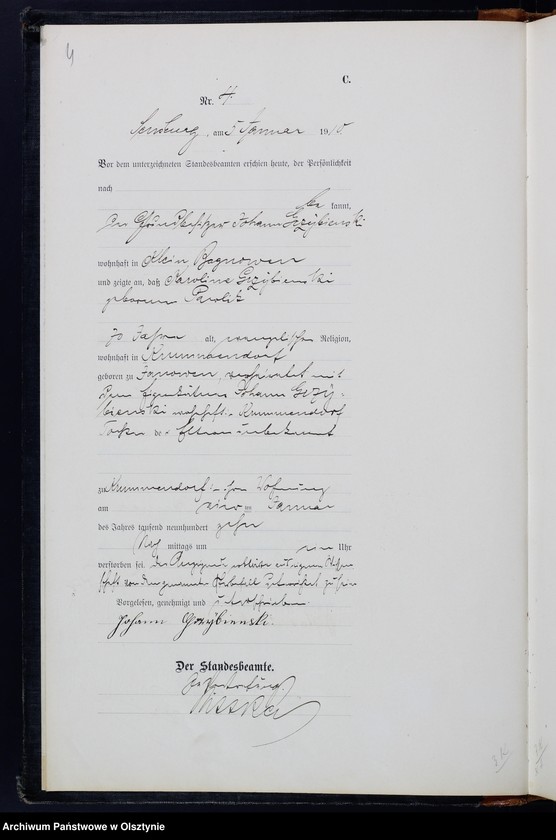 4
C.
Nr. 4.
Sensburg, am 5 Januar 1910.
Vor dem unterzeichneten Standesbeamten erschien heute, der Persönlichkeit
nach
be kannt,
der Grundbesitzer Johann Grzybienski
wohnhaft in Klein Bagnowen
und zeigte an, daß Karoline Grzybienski
geborene
70 Jahre alt, evangelischer Religion,
wohnhaft in Krummendorf
geboren zu Janowen, verheiratet mit
dem Eigenkätner Johann Grzy-
bienski wohnhaft in Krummendorf
Tochter der Eltern unbekannt
zu Krummendorf in ihrer Wohnung
am vier ten Januar
des Jahres tausend neunhundert zehn
Nach mittags um Uhr
verstorben sei. Der Anzeigende erklärte aus eigener Wissen-
schaft von dem gemeldeten Sterbefall unterrichtet zu sein
Vorgelesen, genehmigt und unterschrieben
Johann Grzybienski.
Der Standesbeamte.
In Vertretung
Archiwum Państwowe w Olsztynie